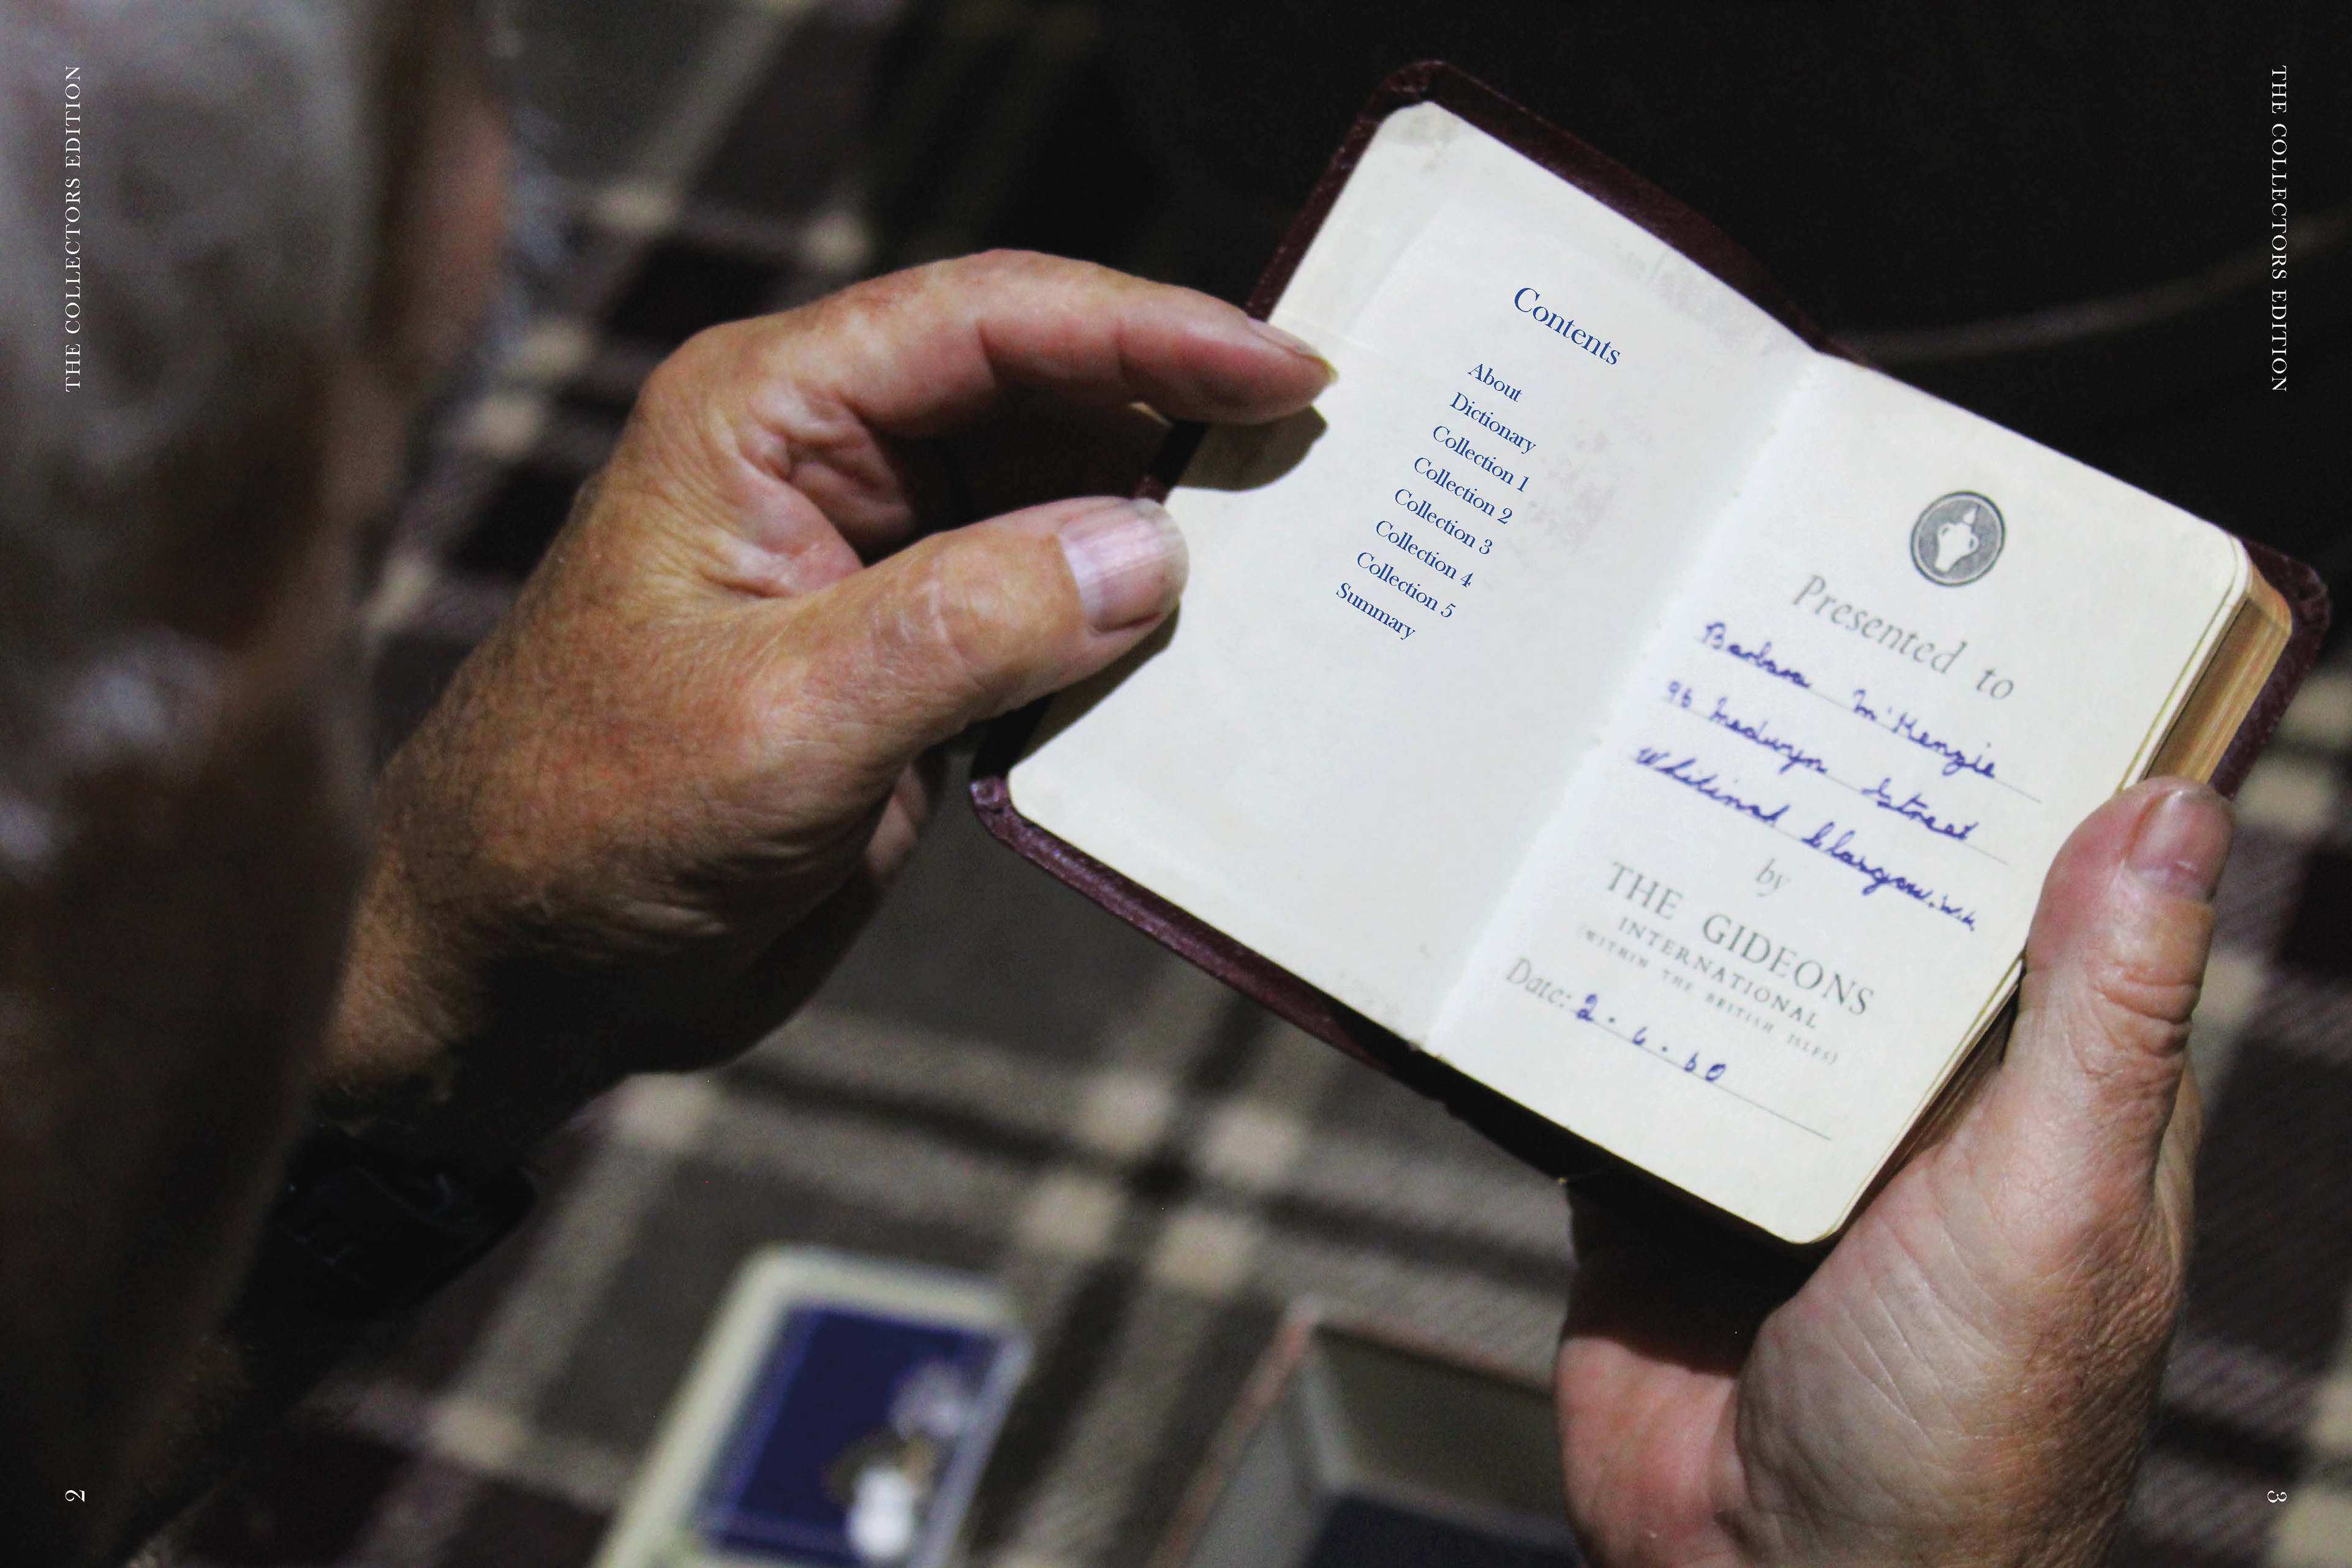 THE COLLECTORS EDITION
THE COLLECTORS EDITION
Contents
About
Dictionary
Collection 1
Collection 2
Collection 3
Collection 4
Collection 5
Summary
Presented to
Barbara M'Kenzie
96 Medwyn Street
Glasgow.
by
THE GIDEONS
INTERNATIONAL
(WITHIN THE BRITISH ISLES)
Date: 2.6.60
2
3